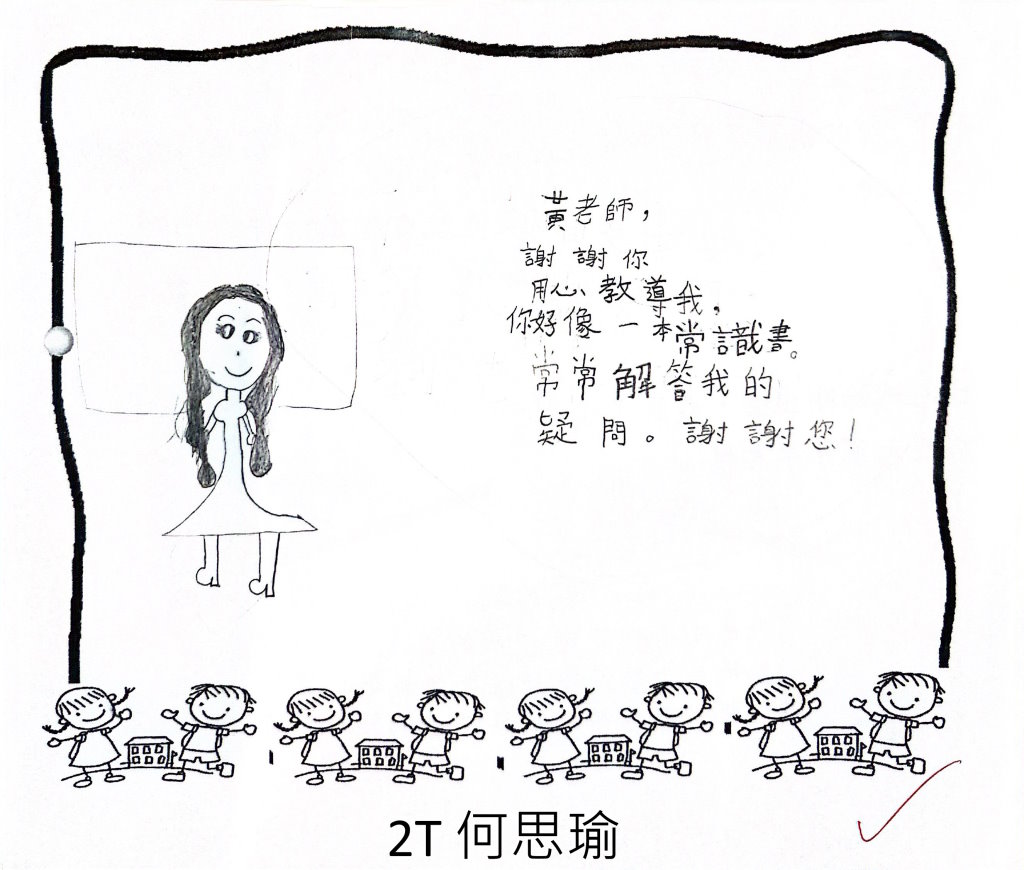 黃老師，
謝謝你
用心教導我，
你好像一本常識書。
常常解答我的
疑問。謝謝您！
2T 何思瑜